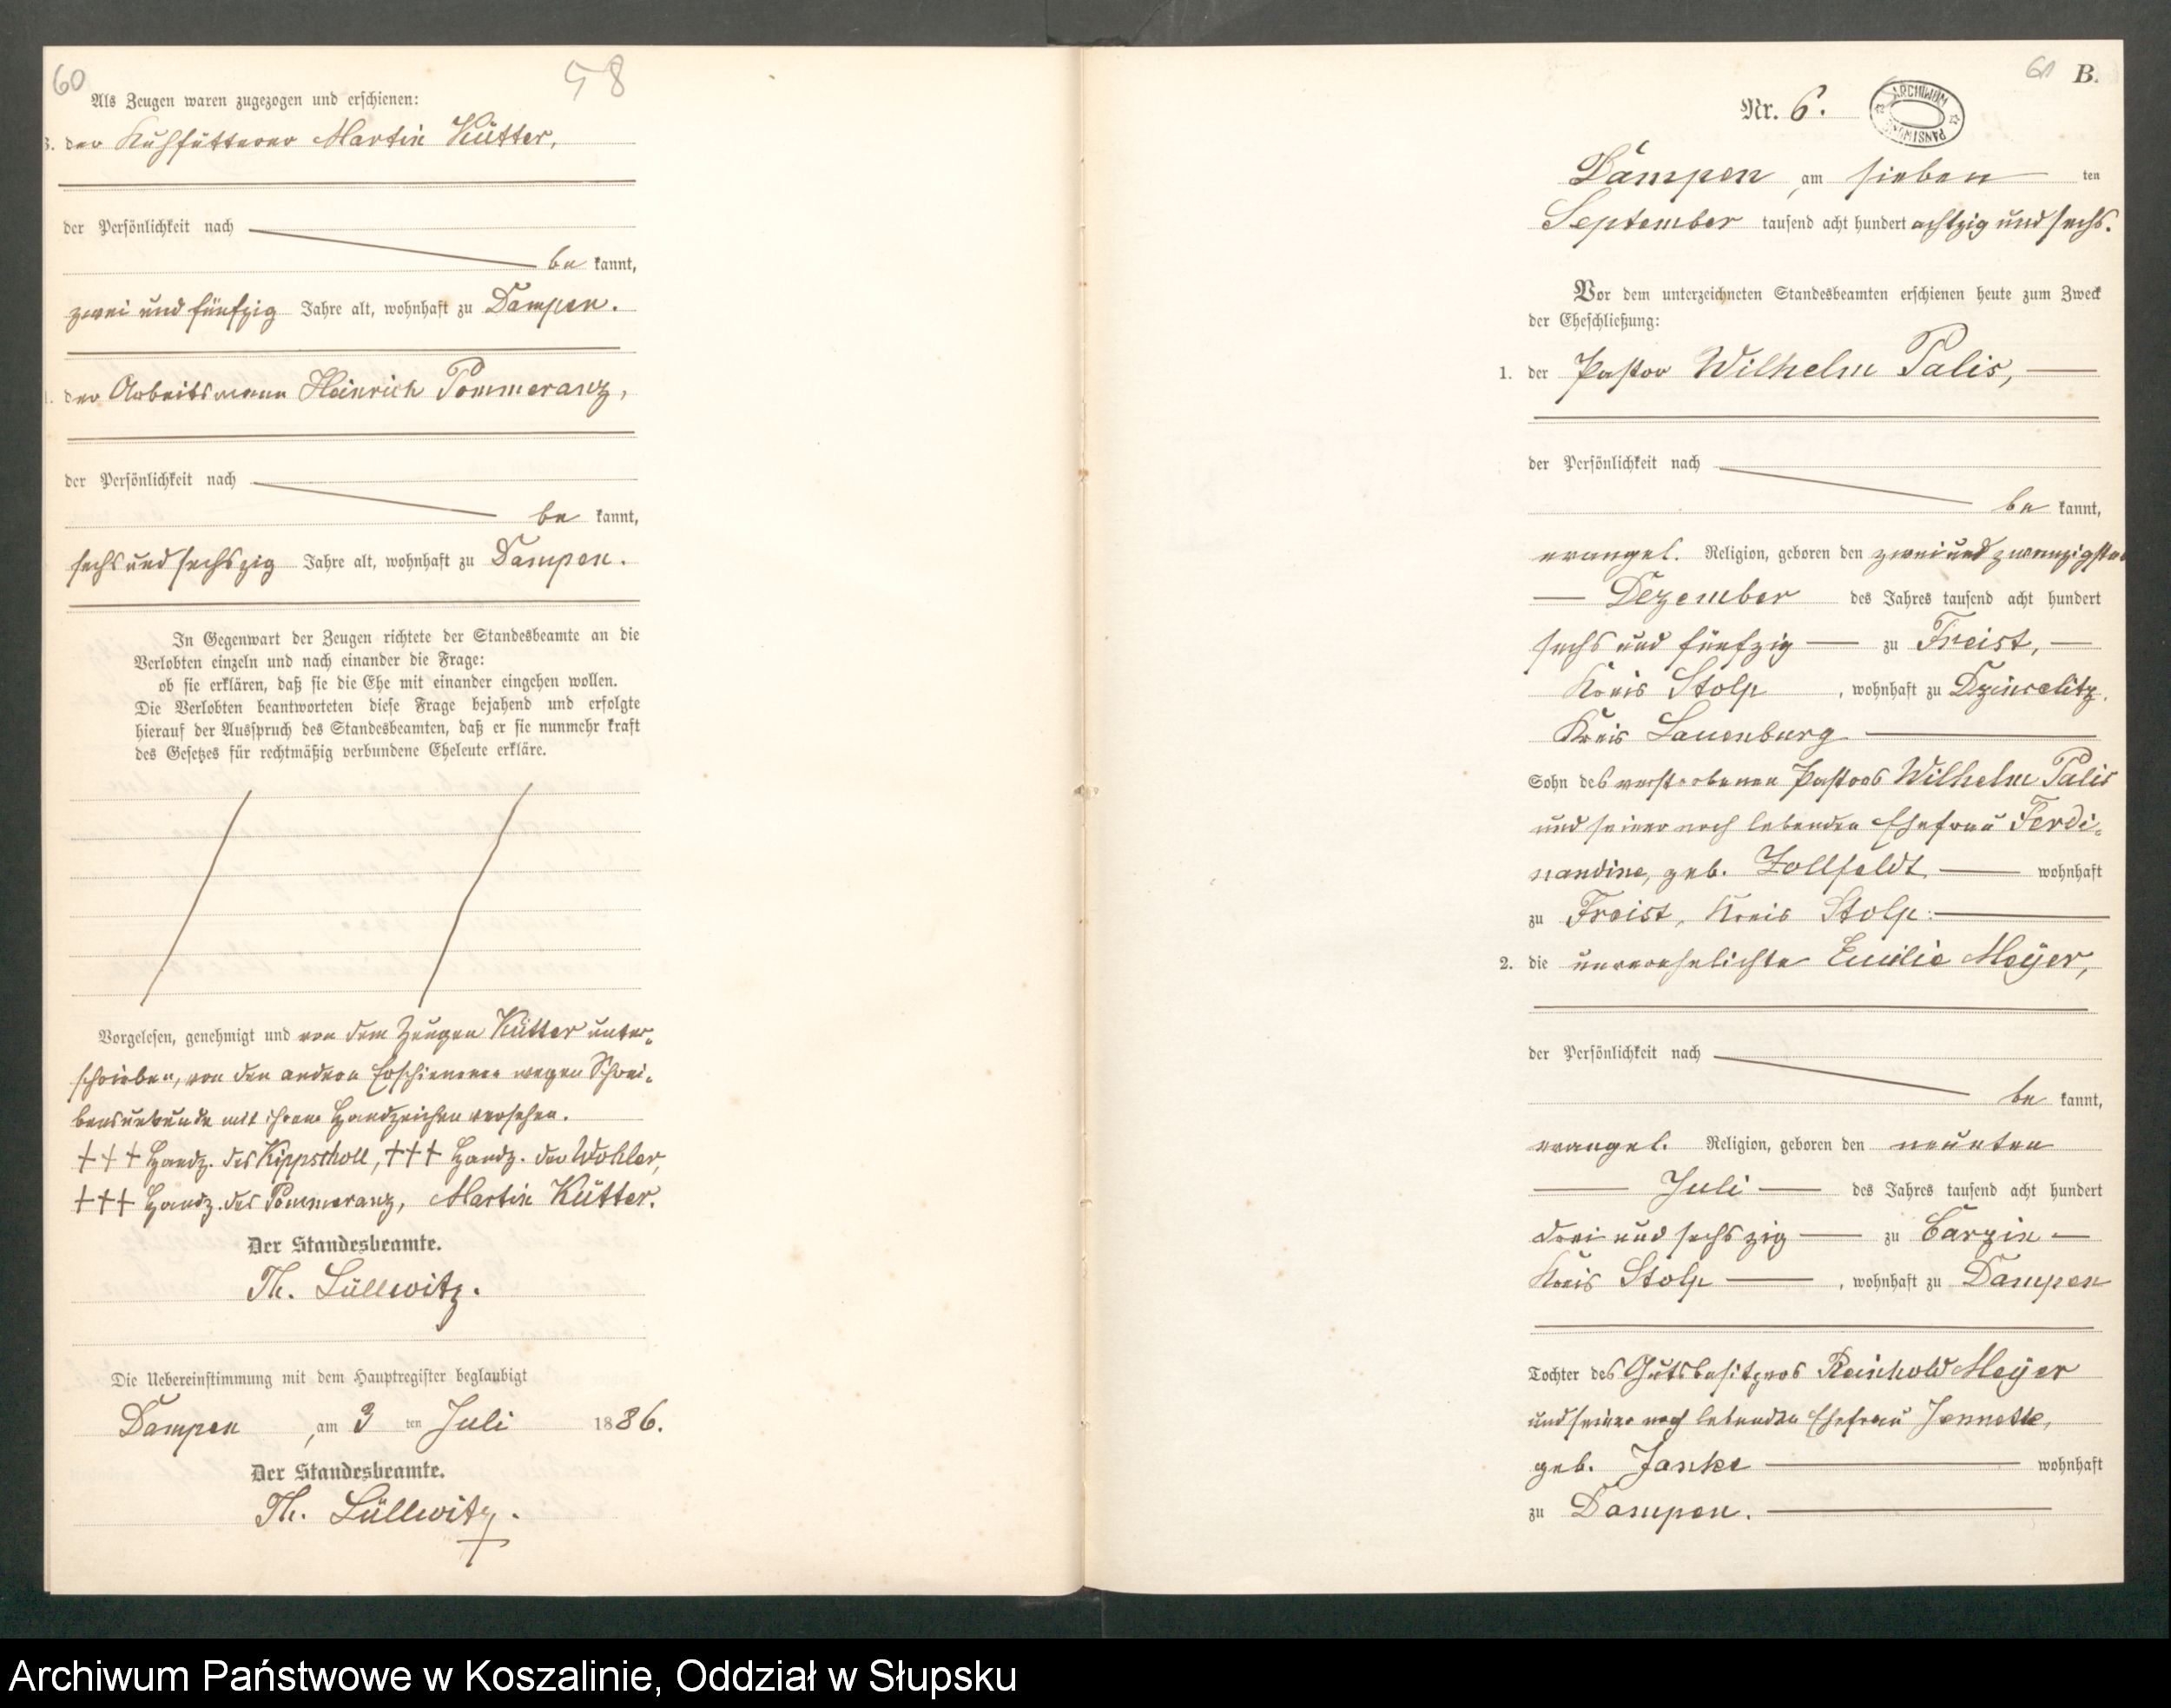 60
58
Als Zeugen waren zugezogen und erschienen:
3. der Kuhfütterer Martin Kütter,
der Persönlichkeit nach
be kannt,
zwei und fünfzig Jahre alt, wohnhaft zu Dampen.
der Arbeitsmann Heinrich Pommeranz,
der Persönlichkeit nach
be kannt,
sechs und sechszig Jahre alt, wohnhaft zu Dampen.
In Gegenwart der Zeugen richtete der Standesbeamte an die
Verlobten einzeln und nach einander die Frage:
ob sie erklären, daß sie die Ehe mit einander eingehen wollen.
Die Verlobten beantworteten diese Frage bejahend und erfolgte
hierauf der Ausspruch des Standesbeamten, daß er sie nunmehr kraft
des Gesetzes für rechtmäßig verbundene Eheleute erkläre.
Vorgelesen, genehmigt und von dem Zeugen Kütter unter-
schrieben, von den andern Erschienenen wegen Schrei-
bensunkunde mit ihrem Handzeichen versehen.
+++ Handz. des Kippscholl, +++ Handz. der Wohler,
+++ Handz. des Pommeranz, Martin Kütter.
Der Standesbeamte.
Th. Lüllwitz.
Die Uebereinstimmung mit dem Hauptregister beglaubigt
Dampen, am 3 ten Juli 1886.
Der Standesbeamte.
Th. Lüllwitz.
61 B.
Nr. 6.
ARCHIWUM PAŃSTWOWE
Dampen, am sieben ten
September tausend acht hundert achtzig und sechs.
Vor dem unterzeichneten Standesbeamten erschienen heute zum Zweck
der Eheschließung:
1. der Pastor Wilhelm Palis,
der Persönlichkeit nach
be kannt,
evangel. Religion, geboren den zwei und zwanzigsten
Dezember des Jahres tausend acht hundert
sechs und fünfzig zu Freist,
Kreis Stolp, wohnhaft zu Dzincelitz,
Kreis Lauenburg
Sohn des verstorbenen Pastors Wilhelm Palis
und seiner noch lebenden Ehefrau Ferdi-
nandine, geb. Zollfeldt wohnhaft
zu Freist, Kreis Stolp.
2. die unverehelichte Emilie Meÿer,
der Persönlichkeit nach
be kannt,
evangel. Religion, geboren den neunten
Juli des Jahres tausend acht hundert
drei und sechszig zu Carzin
Kreis Stolp, wohnhaft zu Dampen
Tochter des Gutsbesitzers Reinhold Meÿer
und seiner noch lebenden Ehefrau Jennette,
geb. Janke wohnhaft
zu Dampen.
Archiwum Państwowe w Koszalinie, Oddział w Słupsku